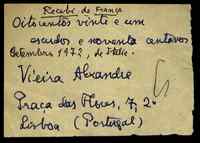 Recebi de França
Oitocentos vinte e um
escudos e noventa centavos
Setembro 1972, de Italie.
Vieira Alexandre
Praça das Flores, 7, 2º
Lisboa (Portugal)